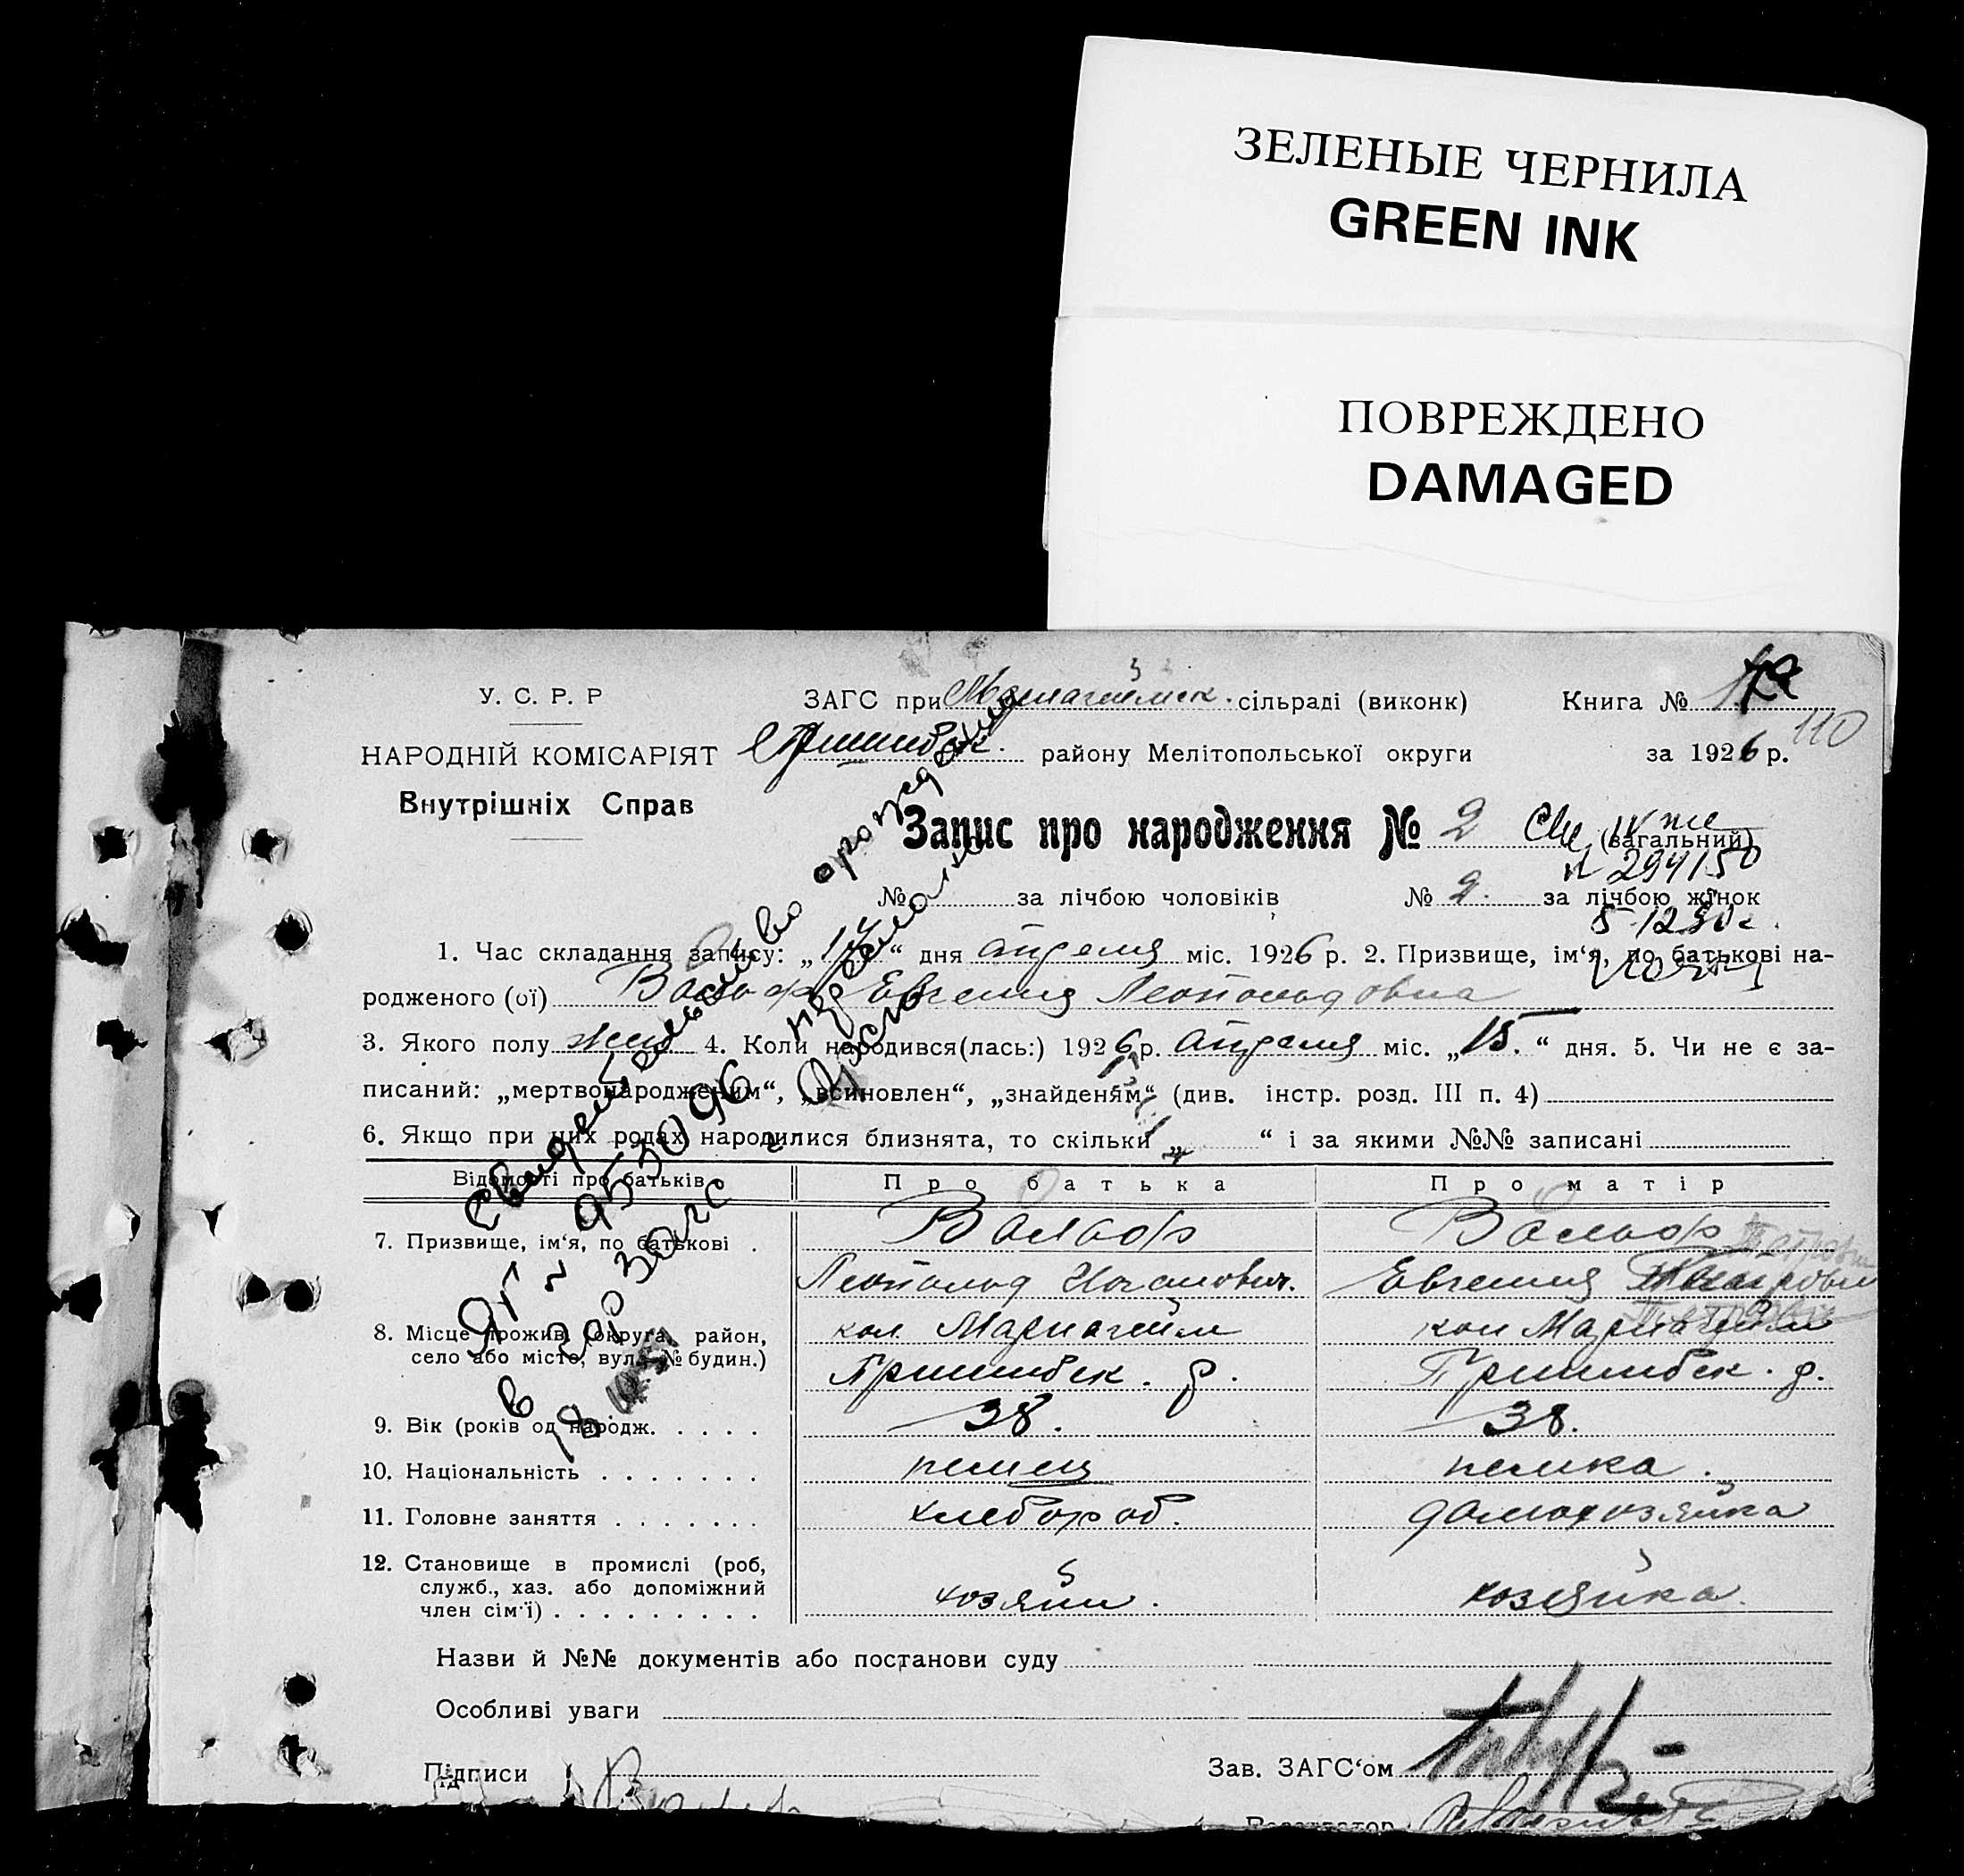 ЗЕЛЕНЫЕ ЧЕРНИЛА
GREEN INK
ПОВРЕЖДЕНО
DAMAGED
У. С. Р. Р
НАРОДНІЙ КОМІСАРІЯТ
Внутрішніх Справ
ЗАГС при сільраді (виконк) Книга №
району Мелітопольської округи за 1926 р. 110
Запис про народження № 2 (загальний)
№ за лічбою чоловіків № 2. за лічбою жінок
1. Час складання запису: „17“ дня апреля міс. 1926 р. 2. Призвище, ім‘я, по батькові на-
родженого (ої) Вольф Евгения Леопольдовна
3. Якого полу жен 4. Коли народився(лась:) 1926 р. апреля міс. „15.“ дня. 5. Чи не є за-
писаний: „мертвонародженим“, „всиновлен“, „знайденям“ (див. інстр. розд. III п. 4)
6. Якщо при цих родах народилися близнята, то скільки „ “ і за якими №№ записані
Відомості про батьків Про батька Про матір
7. Призвище, ім‘я, по батькові . Вольф Вольф
Леопольд Евгения
8. Місце прожив. (округа, район, кол. Мариагейм кол Мариагейм
село або місто, вул. № будин.) Пришибск. р. Пришибск. р.
9. Вік (років од народж. . . . . . 38. 38.
10. Національність . . . . . . . немец немка.
11. Головне заняття . . . . . . . хлебороб. домохозяйка
12. Становище в промислі (роб,
служб., хаз. або допоміжний
член сім‘ї) . . . . . . . . . хозяин. хозяйка.
Назви й №№ документів або постанови суду
Особливі уваги
Підписи Зав. ЗАГС‘ом
Свидетельство о рождении
ЯГ № 9530096